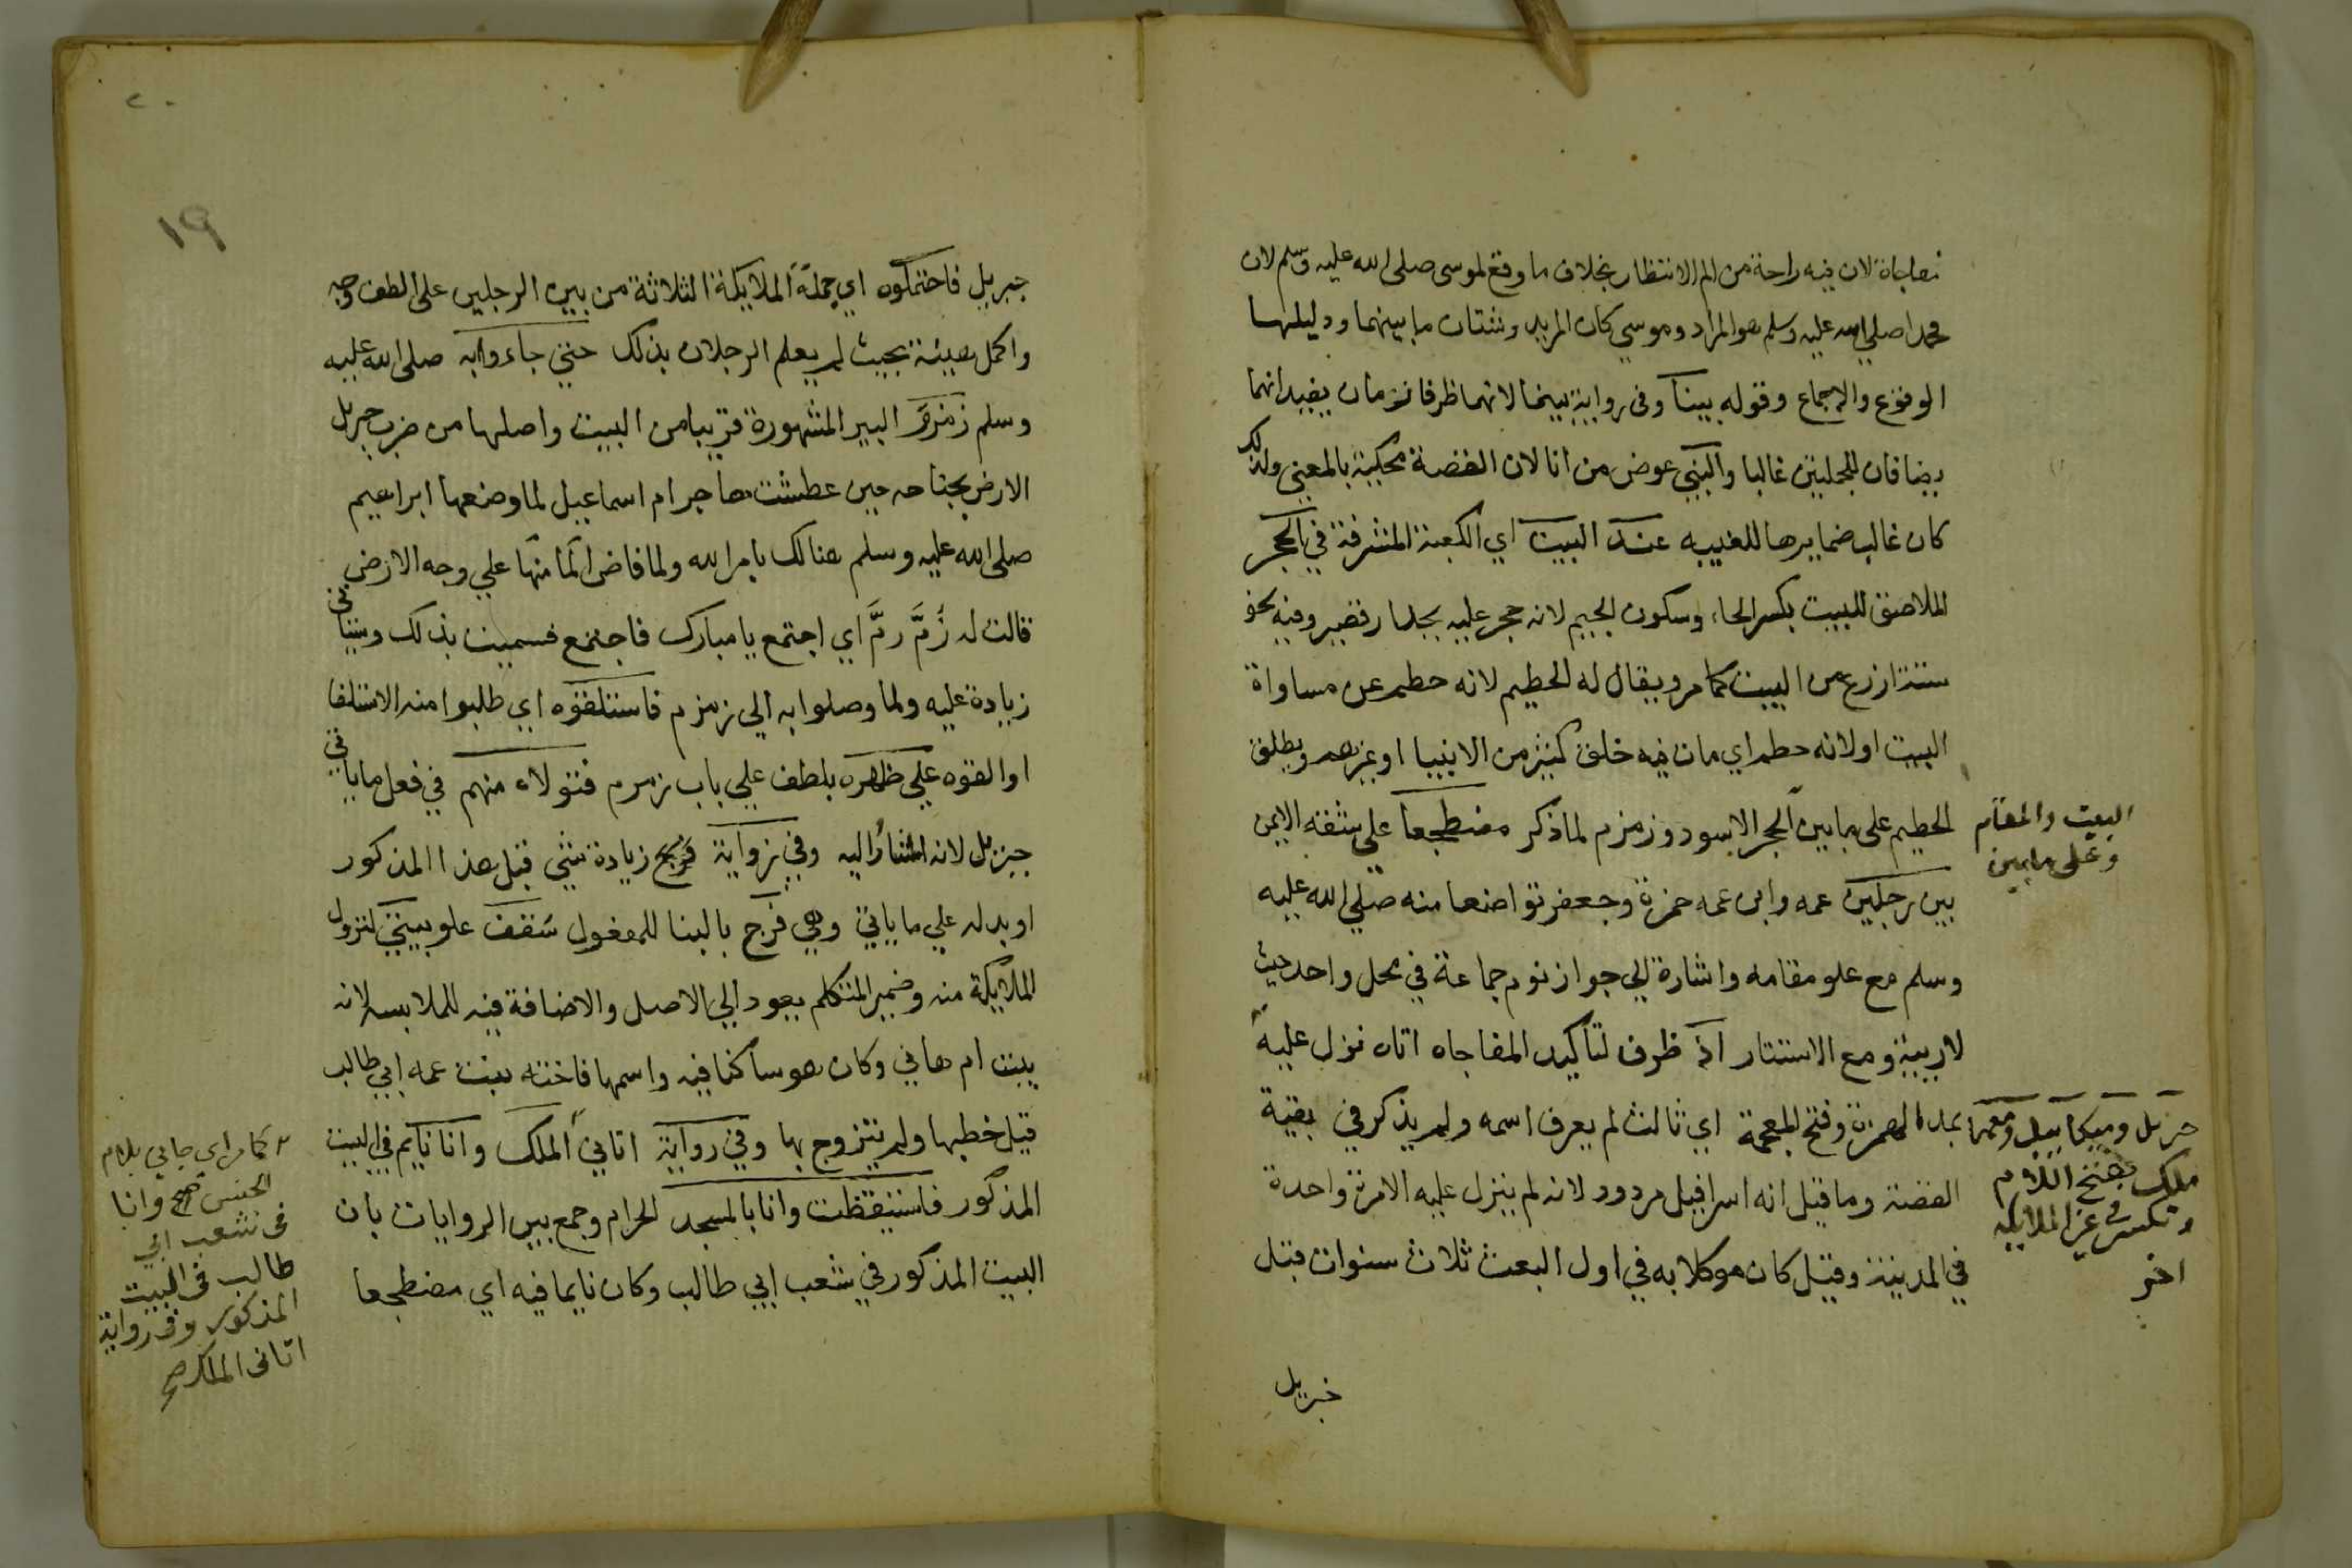 مفاجاة لان فيه راحة من الم الانتظار بخلاف ما وقع لموسى صلى الله عليه وسلم لان
محمدا صلي الله عليه وسلم هو المراد وموسي كان المريد وشتان ما بينهما ودليلها
الوقوع والاجماع وقوله بينا وفي رواية بينما لانهما ظرفا زمان يفيد انهما
يضافان للجملتين غالبا والنبي عوض من انا لان القصة محكية بالمعني ولذلك
كان غالب ضمايرها للغيبه عند البيت اي الكعبة المشرفة في الحجر
الملاصق للبيت بكسر الحاء وسكون الجيم لانه حجر عليه بجدار قصير وفيه نحو
ستة اذرع من البيت كما مر ويقال له الحطيم لانه حطم عن مساواة
البيت او لانه حطم اي مات فيه خلق كثير من الانبيا او غيرهم ويطلق
الحطيم على ما بين الحجر الاسود وزمزم لما ذكر مضطجعا علي شقه الايمن
البيت والمقام
وعلى ما بين
بين رجلين عمه وابن عمه حمزة وجعفر تواضعا منه صلي الله عليه
وسلم مع علو مقامه واشارة الي جواز نوم جماعة في محل واحد حيث
لا ريبة ومع الاستتار اذ ظرف لتاكيد المفاجاه اتاه نزل عليه
جبريل وميكاييل ومعهما
ملك بفتح اللام
وتكسر في غير الملايكه
اخر
بمد الهمزة وفتح المعجمة اي ثالث لم يعرف اسمه ولم يذكر في بقية
القصة وما قيل انه اسرافيل مردود لانه لم ينزل عليه الا مرة واحدة
في المدينة وقيل كان موكلا به في اول البعث ثلاث سنوات قبل
جبريل
١٩
جبريل فاحتملوه اي جملة الملايكة الثلاثة من بين الرجلين على الطف وجه
واكمل هيئة بحيث لم يعلم الرجلان بذلك حتي جاءوا به صلى الله عليه
وسلم زمزم البير المشهورة قريبا من البيت واصلها من ضرب جبريل
الارض بجناحه حين عطشت هاجر ام اسماعيل لما وضعها ابراهيم
صلى الله عليه وسلم هنالك بامر الله ولما فاض الما منها علي وجه الارض
قالت له زم زم اي اجتمع يا مبارك فاجتمع فسميت بذلك وسياتي
زيادة عليه ولما وصلوا به الي زمزم فاستلقوه اي طلبوا منه الاستلقا
او القوه علي ظهره بلطف علي باب زمزم فتولاه منهم في فعل ما ياتي
جبريل لانه المشار اليه وفي رواية فرج زيادة شي قبل هذا المذكور
او بدله علي ما ياتي وهي فرج بالبنا للمفعول سقف علو بيتي لنزول
الملايكة منه وضمير المتكلم يعود الي الاصل والاضافة فيه للملابسه لانه
بيت ام هاني وكان هو ساكنا فيه واسمها فاخته بنت عمه ابي طالب
قيل خطبها ولم يتزوج بها وفي رواية اتاني الملك وانا نايم في البيت
المذكور فاستيقظت وانا بالمسجد الحرام وجمع بين الروايات بان
البيت المذكور في شعب ابي طالب وكان نايما فيه اي مضطجعا
كما مر اي جاني بلام
الجنس صح وانا
في شعب ابي
طالب في البيت
المذكور وفي رواية
اتاني الملك صح